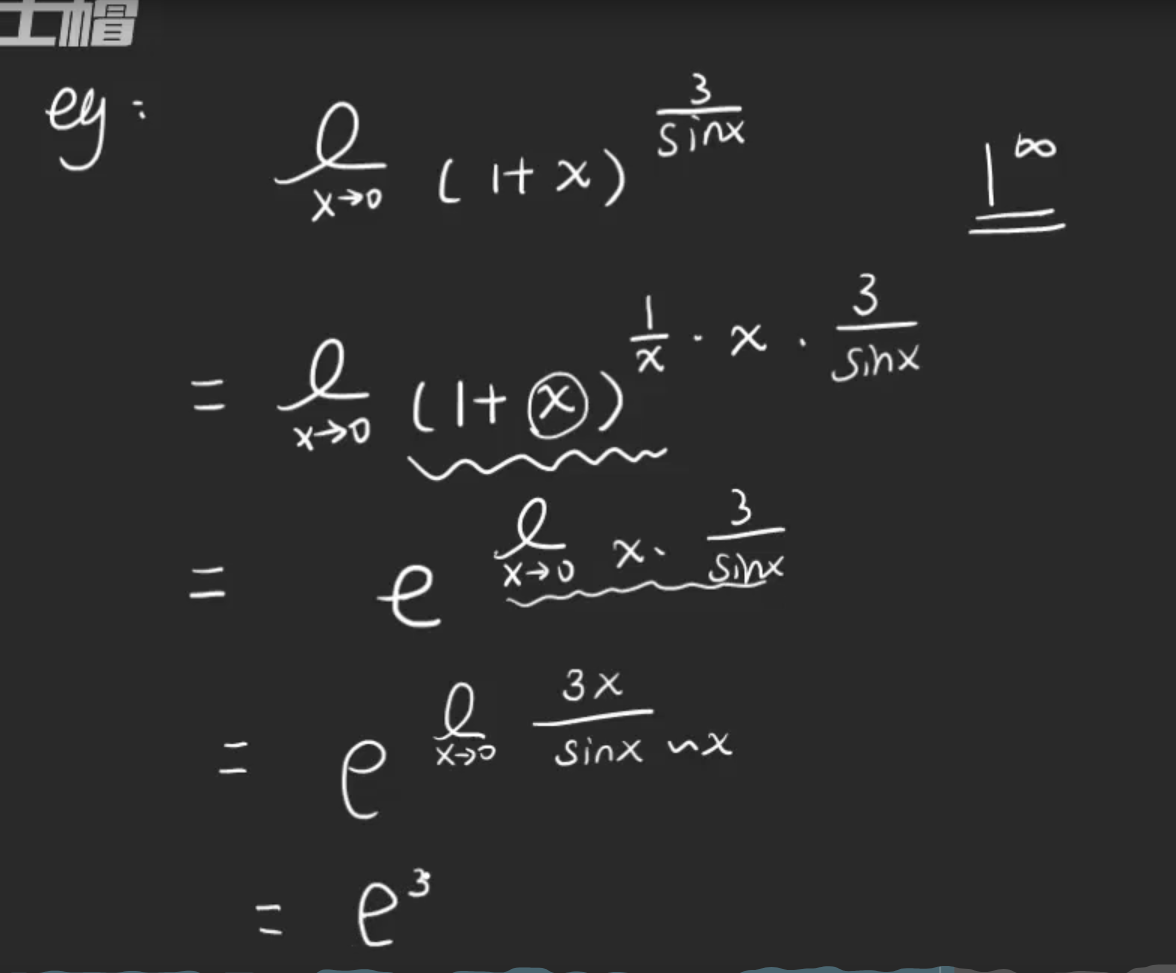 士帽
eg:
l x→0 (1+x)^(3/sinx) 1^∞
= l x→0 (1+x)^(1/x · x · 3/sinx)
= e^(l x→0 x· 3/sinx)
= e^(l x→0 3x/sinx ~x)
= e^3